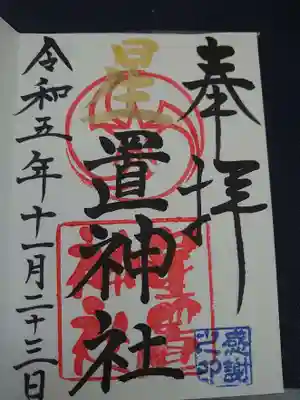 奉拝
星置神社
令和五年十一月二十三日
星置
神社
感謝